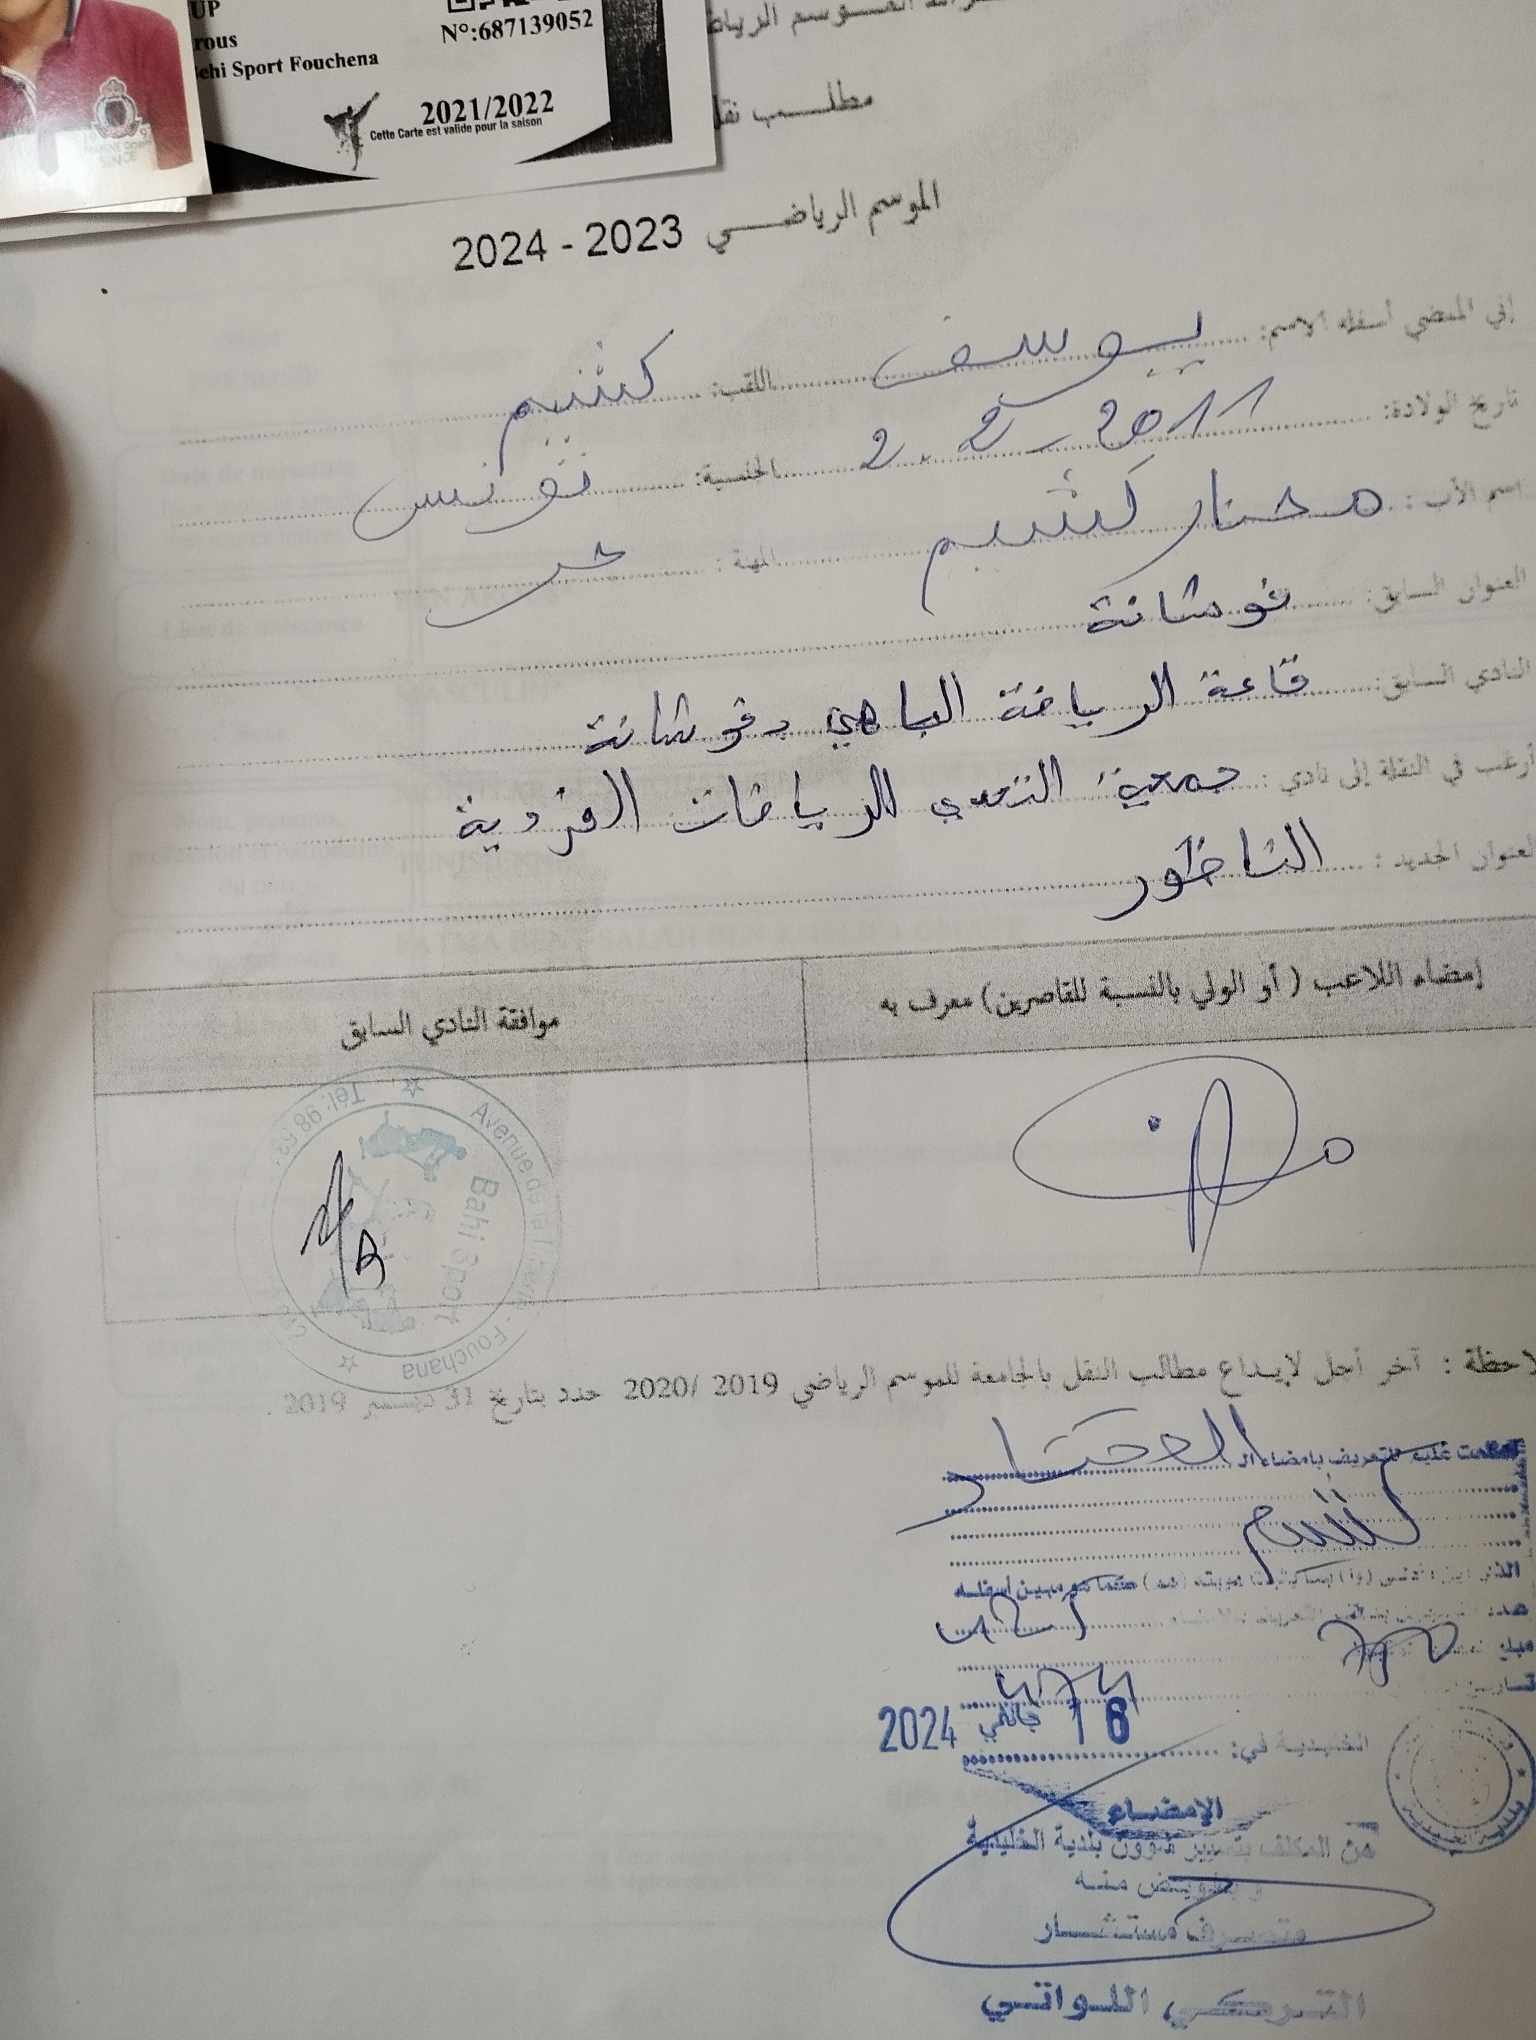 UP
rous
ehi Sport Fouchena
N°:687139052
2021/2022
Cette Carte est valide pour la saison
الموسم الرياض
مطلب نقل
الموسم الرياضي 2023 - 2024
إني الممضي أسفله الاسم: يوسف اللقب: كشيم
تاريخ الولادة: 2.2.2011 الجنسية: تونس
اسم الأب: مختار كشيم المهنة: حر
العنوان السابق: فوشانة
النادي السابق: قاعة الرياضة الباهي بفوشانة
أرغب في النقلة إلى نادي: جمعية التحدي للرياضات الفردية
العنوان الجديد: الناظور
إمضاء اللاعب (أو الولي بالنسبة للقاصرين) معرف به
موافقة النادي السابق
Avenue de la
Fouchana
Tél: 98
Bahi Sport
لاحظة : آخر أجل لإيداع مطالب النقل بالجامعة للموسم الرياضي 2019 /2020 حدد بتاريخ 31 ديسمبر 2019 .
للتعريف بإمضاء المختار
كشيم
هو مبين أسفله
الخليدية في: 16 جانفي 2024
الإمضاء
عن المكلف بتسيير شؤون بلدية الخليدية
وبتفويض منه
متصرف مستشار
التركي اللواتي
بلدية الخليدية